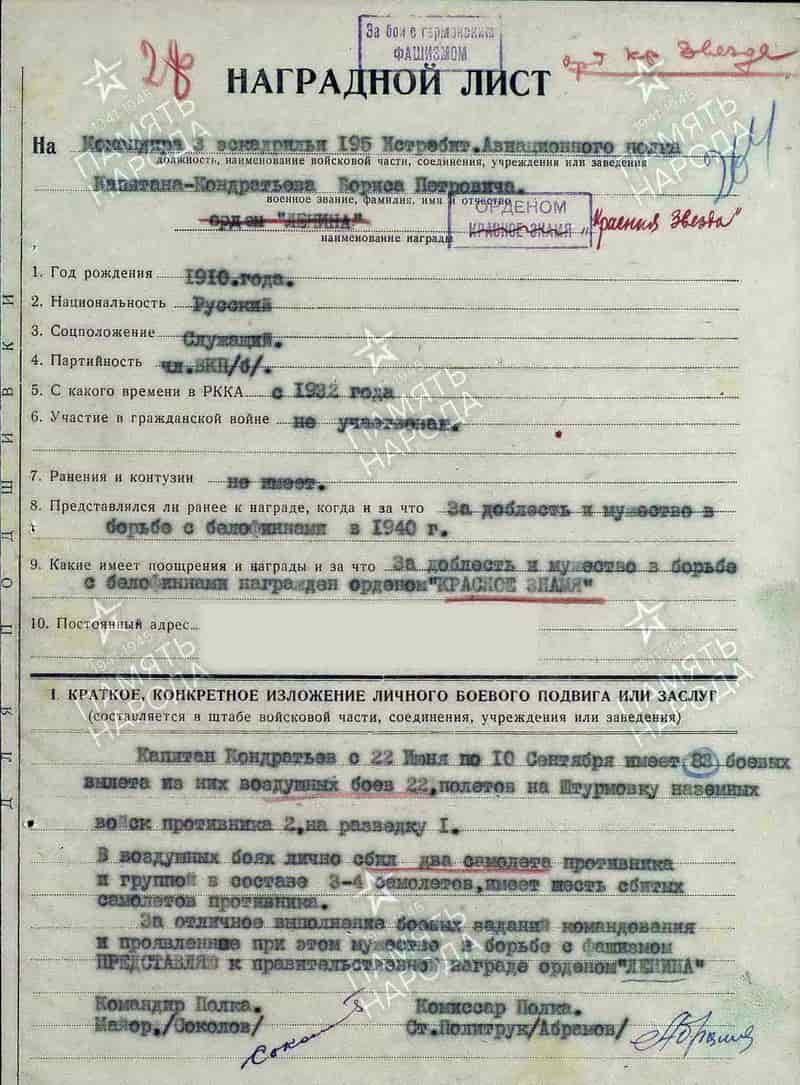 За бои с германским
ФАШИЗМОМ
орд кр Звезда
НАГРАДНОЙ ЛИСТ
На Командира 3 эскадрильи 195 Истребит.Авиационного полка
должность, наименование войсковой части, соединения, учреждения или заведения
Капитана-Кондратьева Бориса Петровича.
военное звание, фамилия, имя и отчество
орден "ЛЕНИНА"
ОРДЕНОМ
КРАСНОЕ ЗНАМЯ "Красная Звезда"
наименование награды
1. Год рождения 1910.года.
2. Национальность Русский
3. Соцположение Служащий.
4. Партийность чл.ВКП/б/.
5. С какого времени в РККА с 1932 года
6. Участие в гражданской войне не участвовал.
7. Ранения и контузии не имеет.
8. Представлялся ли ранее к награде, когда и за что За доблесть и мужество в
борьбе с белофиннами в 1940 г.
9. Какие имеет поощрения и награды и за что За доблесть и мужество в борьбе
с белофиннами награжден орденом"КРАСНОЕ ЗНАМЯ"
10. Постоянный адрес
I. КРАТКОЕ, КОНКРЕТНОЕ ИЗЛОЖЕНИЕ ЛИЧНОГО БОЕВОГО ПОДВИГА ИЛИ ЗАСЛУГ
(составляется в штабе войсковой части, соединения, учреждения или заведения)
Капитан Кондратьев с 22 Июня по 10 Сентября имеет 83 боевых
вылета из них воздушных боев 22,полетов на Штурмовку наземных
войск противника 2,на разведку I.
В воздушных боях лично сбил два самолета противника
и группой в составе 3-4 самолетов,имеет шесть сбитых
самолетов противника.
За отличное выполнение боевых заданий командования
и проявленное при этом мужество в борьбе с фашизмом
ПРЕДСТАВЛЯЮ к правительственной награде орденом"ЛЕНИНА"
Командир Полка. Комиссар Полка.
Майор./Соколов/ Ст.Политрук/Абрамов/
ДЛЯ ПОДШИВКИ
ПАМЯТЬ НАРОДА
1941-1945